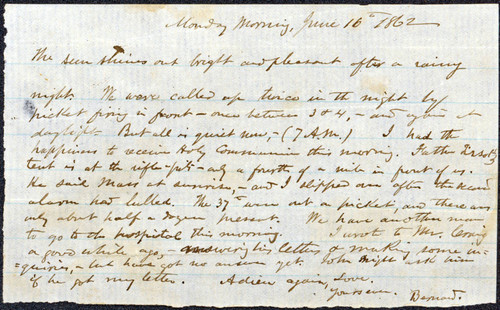 Monday Morning, June 16th 1862
The sun shines out bright and pleasant after a rainy
night. We were called up twice in the night by
picket firing in front - once between 3 & 4, - and again at
daylight. But all is quiet now, - (7 A.M.) I had the
happiness to receive Holy Communion this morning. Father
tent is at the rifle-pits - only a fourth of a mile in front of us.
He said Mass at sunrise, - and I slipped over after the second
alarm had lulled. The 37th were out a picket, and there are
only about half a dozen present. We have another man
to go to the hospital this morning. I wrote to Mr. Craig
a good while ago, answering his letter & making some in-
=quiries, - but have got no answer yet. John might ask him
if he got my letter. Adieu again, Love.
Yours ever. Bernard.